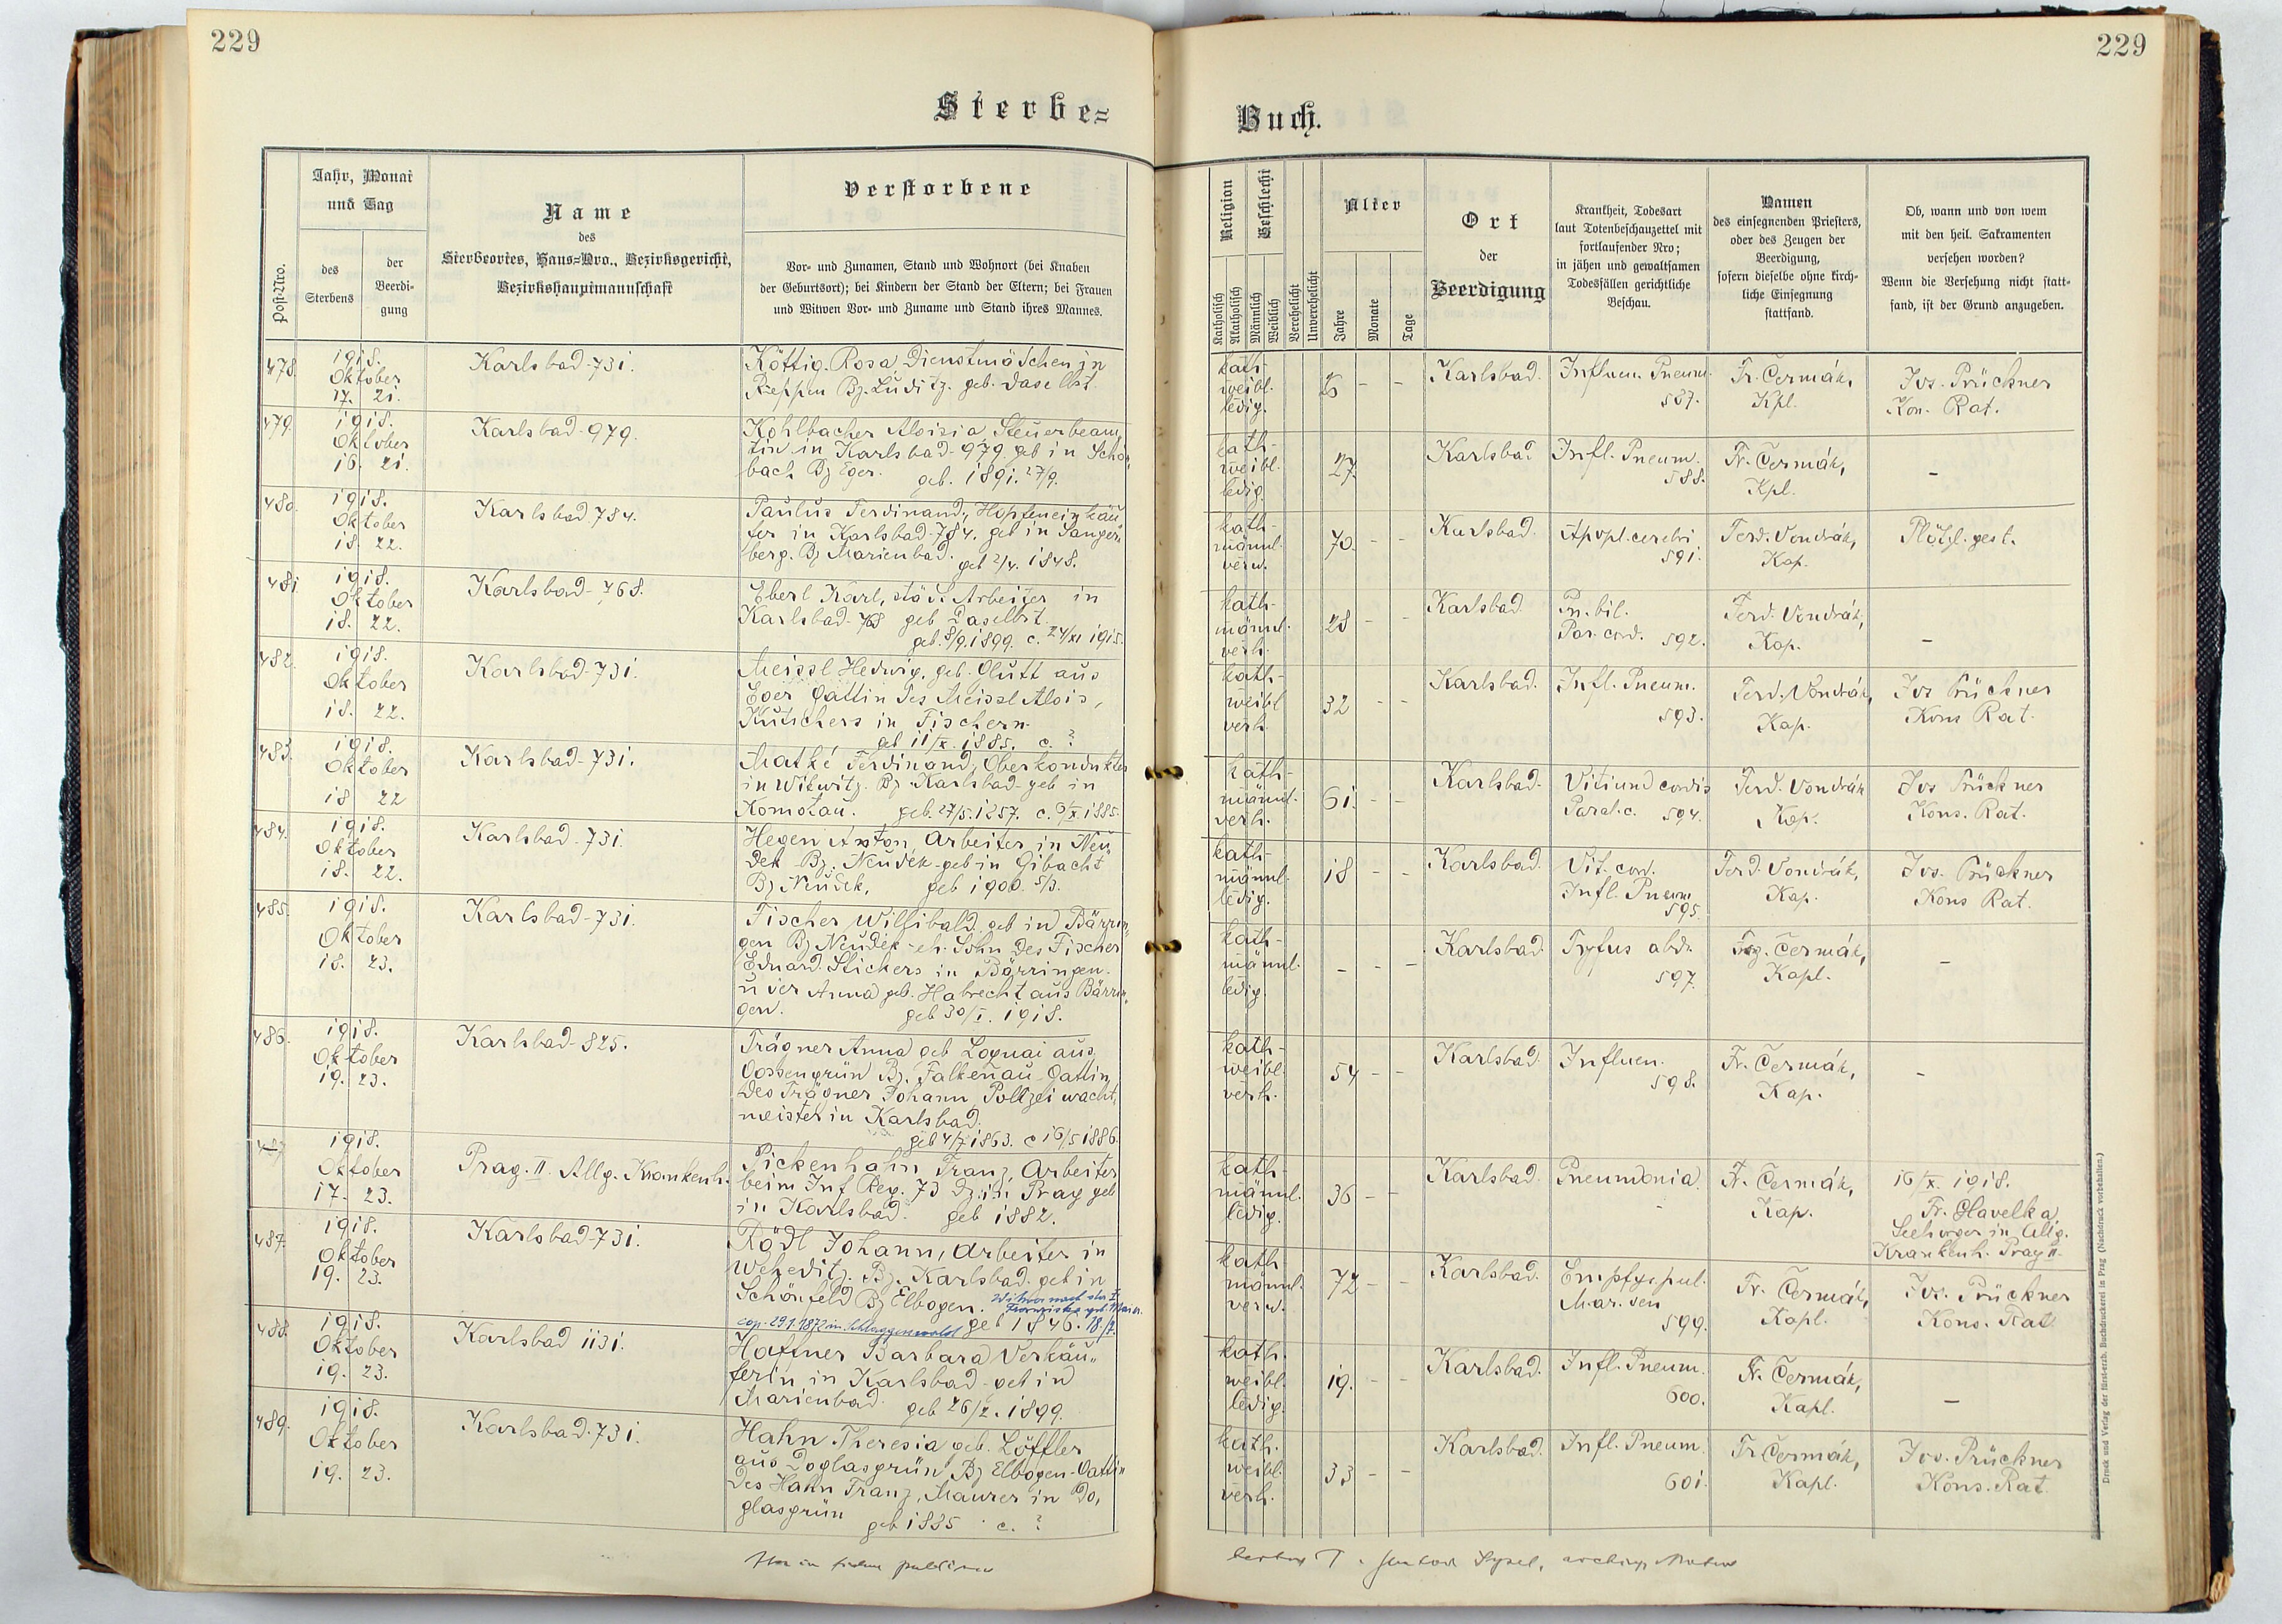 229
229
Sterbe=
Buch.
Post-Nro.
Jahr, Monat
und Tag
des
Sterbens
der
Beerdi-
gung
Name
des
Sterbeortes, Haus=Nro., Bezirksgericht,
Bezirkshauptmannschaft
Verstorbene
Vor- und Zunamen, Stand und Wohnort (bei Knaben
der Geburtsort); bei Kindern der Stand der Eltern; bei Frauen
und Witwen Vor- und Zuname und Stand ihres Mannes.
Religion
Katholisch
Akatholisch
Geschlecht
Männlich
Weiblich
Verehelicht
Unverehelicht
Alter
Jahre
Monate
Tage
Ort
der
Beerdigung
Krankheit, Todesart
laut Totenbeschauzettel mit
fortlaufender Nro;
in jähen und gewaltsamen
Todesfällen gerichtliche
Beschau.
Namen
des einsegnenden Priesters,
oder des Zeugen der
Beerdigung,
sofern dieselbe ohne kirch-
liche Einsegnung
stattfand.
Ob, wann und von wem
mit den heil. Sakramenten
versehen worden?
Wenn die Versehung nicht statt-
fand, ist der Grund anzugeben.
478.
1918.
Oktober
17. 21.
Karlsbad-731.
Köttig Rosa, Dienstmädchen in
Reppen Bz. Luditz. geb. daselbst.
kath-
weibl.
ledig.
- -
Karlsbad.
Influen. Pneum.
587.
Fr. Čermák,
Kpl.
Jos. Prückner
Kon. Rat.
479.
1918.
Oktober
16. 21.
Karlsbad-979.
Kohlbacher Aloisia, Steuerbeam
tin in Karlsbad-979. geb in Schön
bach Bz Eger. geb. 1891. 27/9.
kath-
weibl.
ledig.
27.
Karlsbad
Infl. Pneum.
588.
Fr. Čermák,
Kpl.
-
480.
1918.
Oktober
18. 22.
Karlsbad 784.
Paulus Ferdinand, Hopfeneinkäu
fer in Karlsbad-784. geb in Sanger
berg. Bz Marienbad. geb 2/4. 1848.
kath-
männl.
verw.
70. - -
Karlsbad.
Apopl. cerebri
591.
Ferd. Vondrák,
Kap.
Plötzl. gest.
481.
1918.
Oktober
18. 22.
Karlsbad-768.
Eberl Karl, städt. Arbeiter in
Karlsbad-768 geb daselbst.
geb. 8/9. 1899. c. 24/XI 1915.
kath-
männl.
verh.
28 - -
Karlsbad.
Pn. bil.
Par. cord. 592.
Ferd. Vondrák,
Kap.
-
482.
1918.
Oktober
18. 22.
Karlsbad-731.
Meissl Hedwig, geb. Glutt aus
Eger Gattin des Meissl Alois,
Kutschers in Fischern.
geb 11/X. 1885. c. ?
kath-
weibl
verh
32 - -
Karlsbad.
Infl. Pneum.
593.
Ferd. Vondrák,
Kap.
Jos Prückner
Kons Rat.
483.
1918.
Oktober
18 22
Karlsbad-731.
Mathé Ferdinand, Oberkondukteur
in Witwitz. Bz Karlsbad-geb in
Komotau. geb. 27/5. 1257. c. 9/X. 1885.
kath-
männl.
verh.
61. - -
Karlsbad.
Vitiund cordis
Paral. c. 594.
Ferd. Vondrák
Kap.
Jos Prückner
Kons. Rat.
484.
1918.
Oktober
18. 22.
Karlsbad-731.
Hegen Anton, Arbeiter in Neu
dek Bz. Neudek-geb in Gibacht
Bz Neudek, geb 1900. 5/3.
kath-
männl.
ledig.
18 - -
Karlsbad.
Vit. cord.
Infl. Pneum
595.
Ferd. Vondrák,
Kap.
Jos. Prückner
Kons Rat.
485.
1918.
Oktober
18. 23.
Karlsbad-731.
Fischer Willibald, geb in Bärrin„
gen Bz Neudek-eh. Sohn des Fischer
Eduard. Stickers in Bärringen.
u der Anna geb. Habrecht aus Bärrin„
gen. geb 30/I. 1918.
kath-
männl.
ledig.
- - -
Karlsbad
Tyfus abd.
597.
Čermák,
Kapl.
-
486.
1918.
Oktober
19. 23.
Karlsbad-825.
Trägner Anna geb Loquai aus
Gossengrün Bz. Falkenau-Gattin
des Trägner Johann, Polizei wacht,
meister in Karlsbad.
geb 4/7 1863. c 16/5 1886.
kath-
weibl.
verh.
54 - -
Karlsbad.
Influen.
598.
Fr. Čermák,
Kap.
-
1918.
Oktober
17. 23.
Prag. II. Allg. Krankenh.
Pickenhahn Franz, Arbeiter
beim Inf Reg. 73 dz. in Prag geb
in Karlsbad. geb 1882.
kath-
männl.
ledig.
36 - -
Karlsbad
Pneumonia.
-
Fr. Čermák,
Kap.
16/X. 1918.
Fr. Havelka
Seelsorger in Allg.
Krankenh. Prag II.
487.
1918.
Oktober
19. 23.
Karlsbad-731.
Rödl Johann, Arbeiter in
Weheditz. Bz. Karlsbad. geb in
Schönfeld Bz Elbogen. Witwer nach der †
Franziska geb. Maier.
cop. 29.1.1872 in Schlaggenwald geb 1846. 18./7.
kath
männl.
verw.
72 - -
Karlsbad.
Empfys pul.
Mar. sen
599.
Fr. Čermák,
Kapl.
Jos. Prückner
Kons. Rat
488.
1918.
Oktober
19. 23.
Karlsbad 1131.
Hafner Barbara Verkäu„
ferin in Karlsbad-geb in
Marienbad. geb 26/X. 1899.
kath.
weibl.
ledig.
19. - -
Karlsbad.
Infl. Pneum.
600.
Fr. Čermák,
Kapl.
-
489.
1918.
Oktober
19. 23.
Karlsbad. 731.
Hahn Theresia geb. Löffler
aus Doglasgrün Bz Elbogen-Gattin
des Hahn Franz, Maurer in Do,
glasgrün geb 1885 c. ?
kath.
weibl.
verh.
33 - -
Karlsbad.
Infl. Pneum.
601.
Fr Čermák,
Kapl.
Jos. Prückner
Kons. Rat.
Druck und Verlag der fürst-erzb. Buchdruckerei in Prag (Nachdruck vorbehalten.)